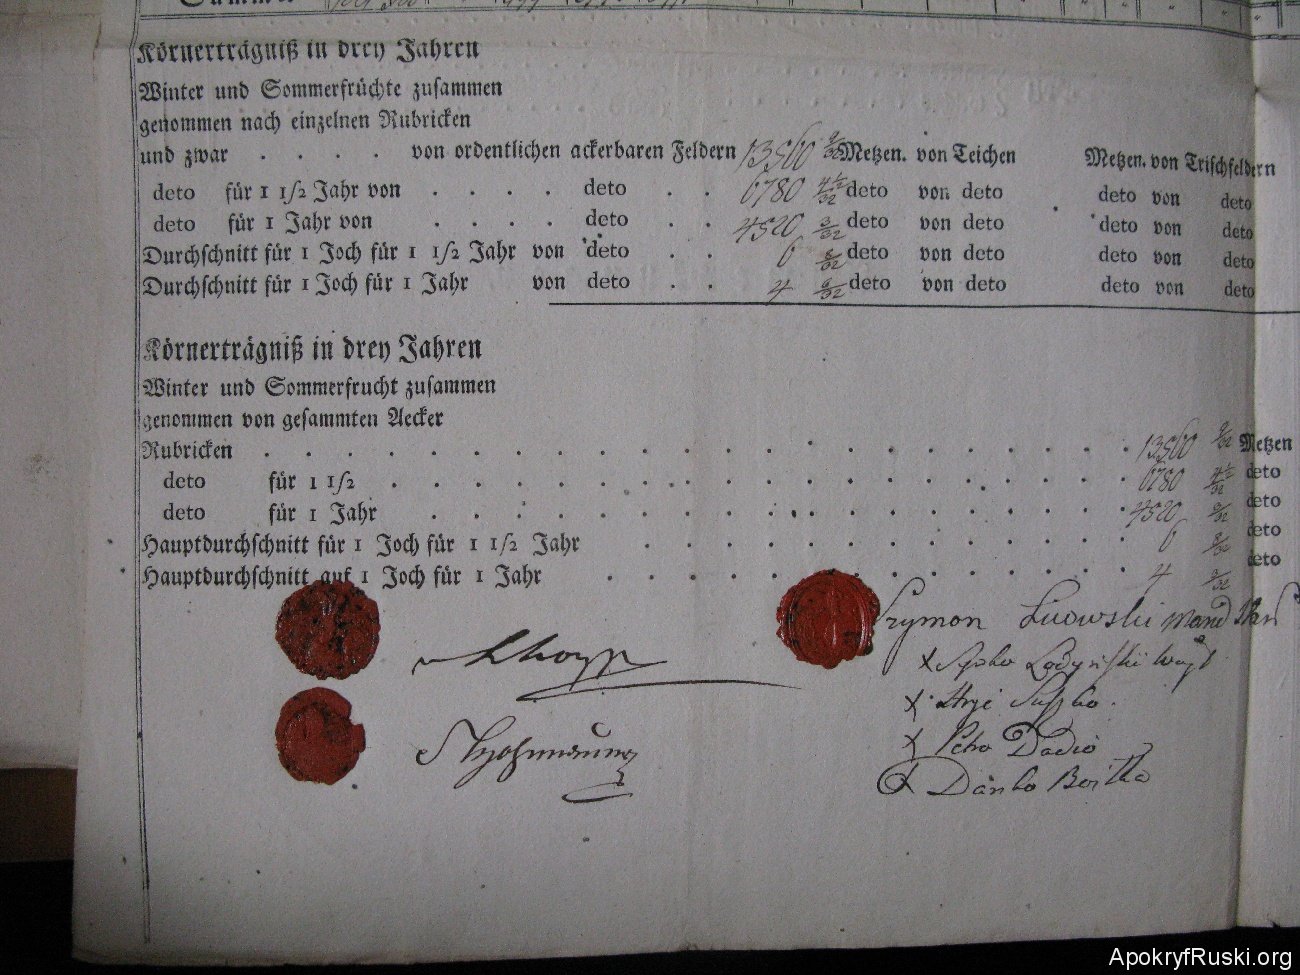 Summe
Körnerträgniß in drey Jahren
Winter und Sommerfrüchte zusammen
genommen nach einzelnen Rubricken
und zwar . . . . von ordentlichen ackerbaren Feldern 13560 9/32 Metzen. von Teichen Metzen. von Trischfeldern
deto für 1 1/2 Jahr von . . . . deto . . 6780 4 1/2/32 deto von deto deto von deto
deto für 1 Jahr von . . . . deto . . 4520 3/32 deto von deto deto von deto
Durchschnitt für 1 Joch für 1 1/2 Jahr von deto . . 6 /32 deto von deto deto von deto
Durchschnitt für 1 Joch für 1 Jahr von deto . . 4 /32 deto von deto deto von deto
Körnerträgniß in drey Jahren
Winter und Sommerfrucht zusammen
genommen von gesammten Aecker
Rubricken 13560 9/32 Metzen
deto für 1 1/2 6780 4 1/2/32 deto
deto für 1 Jahr 4520 3/32 deto
Hauptdurchschnitt für 1 Joch für 1 1/2 Jahr 6 /32 deto
Hauptdurchschnitt auf 1 Joch für 1 Jahr 4 /32 deto
Szymon Luowski Mand
X Lodyński
X Hryć Suszko.
X Petro Dadio
X Danko Boitko
ApokryfRuski.org